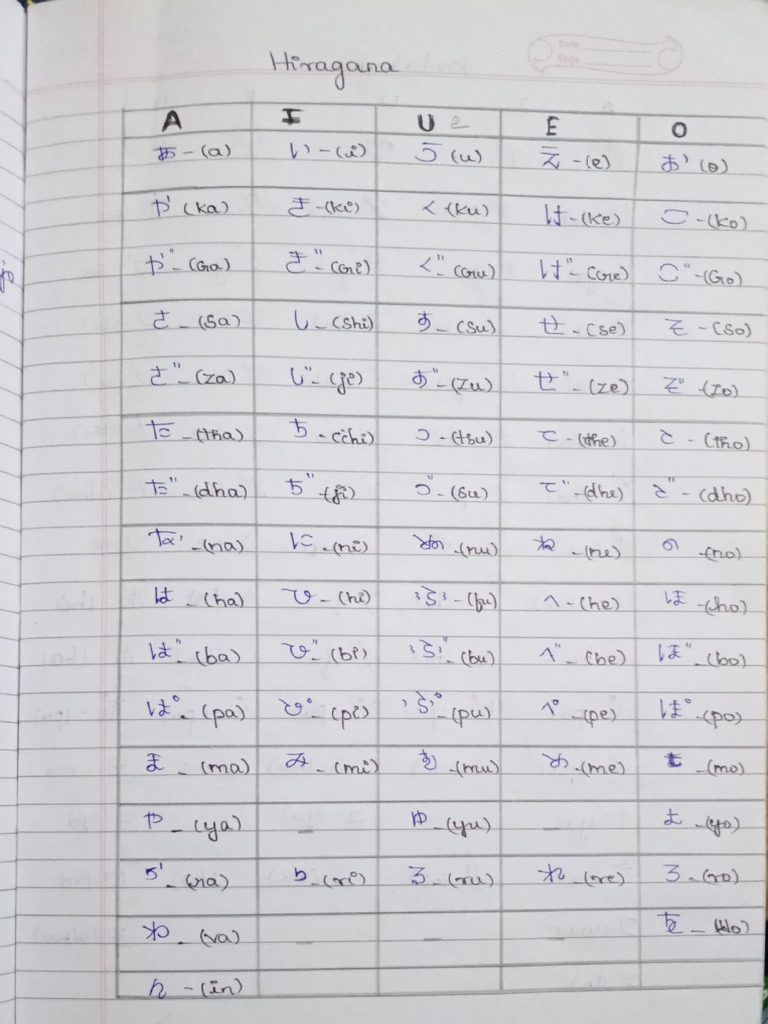 Date
Page
Hiragana
A I U E O
あ - (a) い - (i) う (u) え - (e) お (o)
か (ka) き - (ki) く (ku) け - (ke) こ - (ko)
が - (Ga) ぎ - (Gi) ぐ - (Gu) げ - (Ge) ご - (Go)
さ - (sa) し - (shi) す - (su) せ - (se) そ - (so)
ざ - (za) じ - (ji) ず - (zu) ぜ - (ze) ぞ - (zo)
た - (tha) ち - (chi) つ - (tsu) て - (the) と - (tho)
だ - (dha) ぢ - (ji) づ - (su) で - (dhe) ど - (dho)
な - (na) に - (ni) ぬ - (nu) ね - (ne) の - (no)
は - (ha) ひ - (hi) ふ - (fu) へ - (he) ほ - (ho)
ば - (ba) び - (bi) ぶ - (bu) べ - (be) ぼ - (bo)
ぱ - (pa) ぴ - (pi) ぷ - (pu) ぺ - (pe) ぽ - (po)
ま - (ma) み - (mi) む - (mu) め - (me) も - (mo)
や - (ya) — ゆ - (yu) — よ - (yo)
ら - (ra) り - (ri) る - (ru) れ - (re) ろ - (ro)
わ - (va) — — — を -
ん - (in)